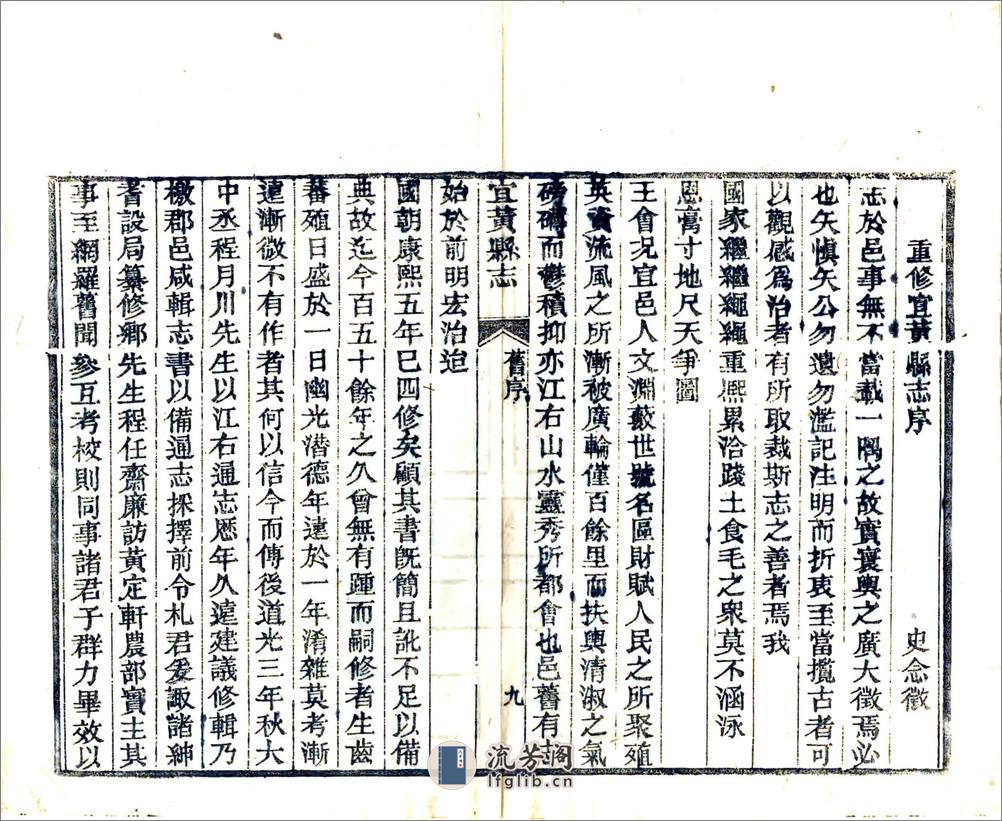 重修宜黃縣志序
史念徵
志於邑事無不當載一隅之故實寰輿之廣大徵焉必
也矢慎矢公勿遺勿濫記注明而折衷至當攬古者可
以觀感爲治者有所取裁斯志之善者焉我
國家繼繼繩繩重熙累洽踐土食毛之衆莫不涵泳
恩膏寸地尺天爭圖
王會况宜邑人文淵藪世號名區財賦人民之所聚殖
英資流風之所漸被廣輪僅百餘里而扶輿清淑之氣
磅礴而鬱積抑亦江右山水靈秀所都會也邑舊有
宜黃縣志
舊序
九
始於前明宏治迨
國朝康熙五年巳四修矣顧其書旣簡且訛不足以備
典故迄今百五十餘年之久曾無有踵而嗣修者生齒
蕃殖日盛於一日幽光潜德年遠於一年淆雜莫考漸
遠漸微不有作者其何以信今而傳後道光三年秋大
中丞程月川先生以江右通志歷年久遠建議修輯乃
檄郡邑咸輯志書以備通志採擇前令札君爰諏諸紳
耆設局纂修鄉先生程任齋廉訪黃定軒農部實主其
事至網羅舊聞參互考校則同事諸君子群力畢效以
流芳閣
lfglib.cn